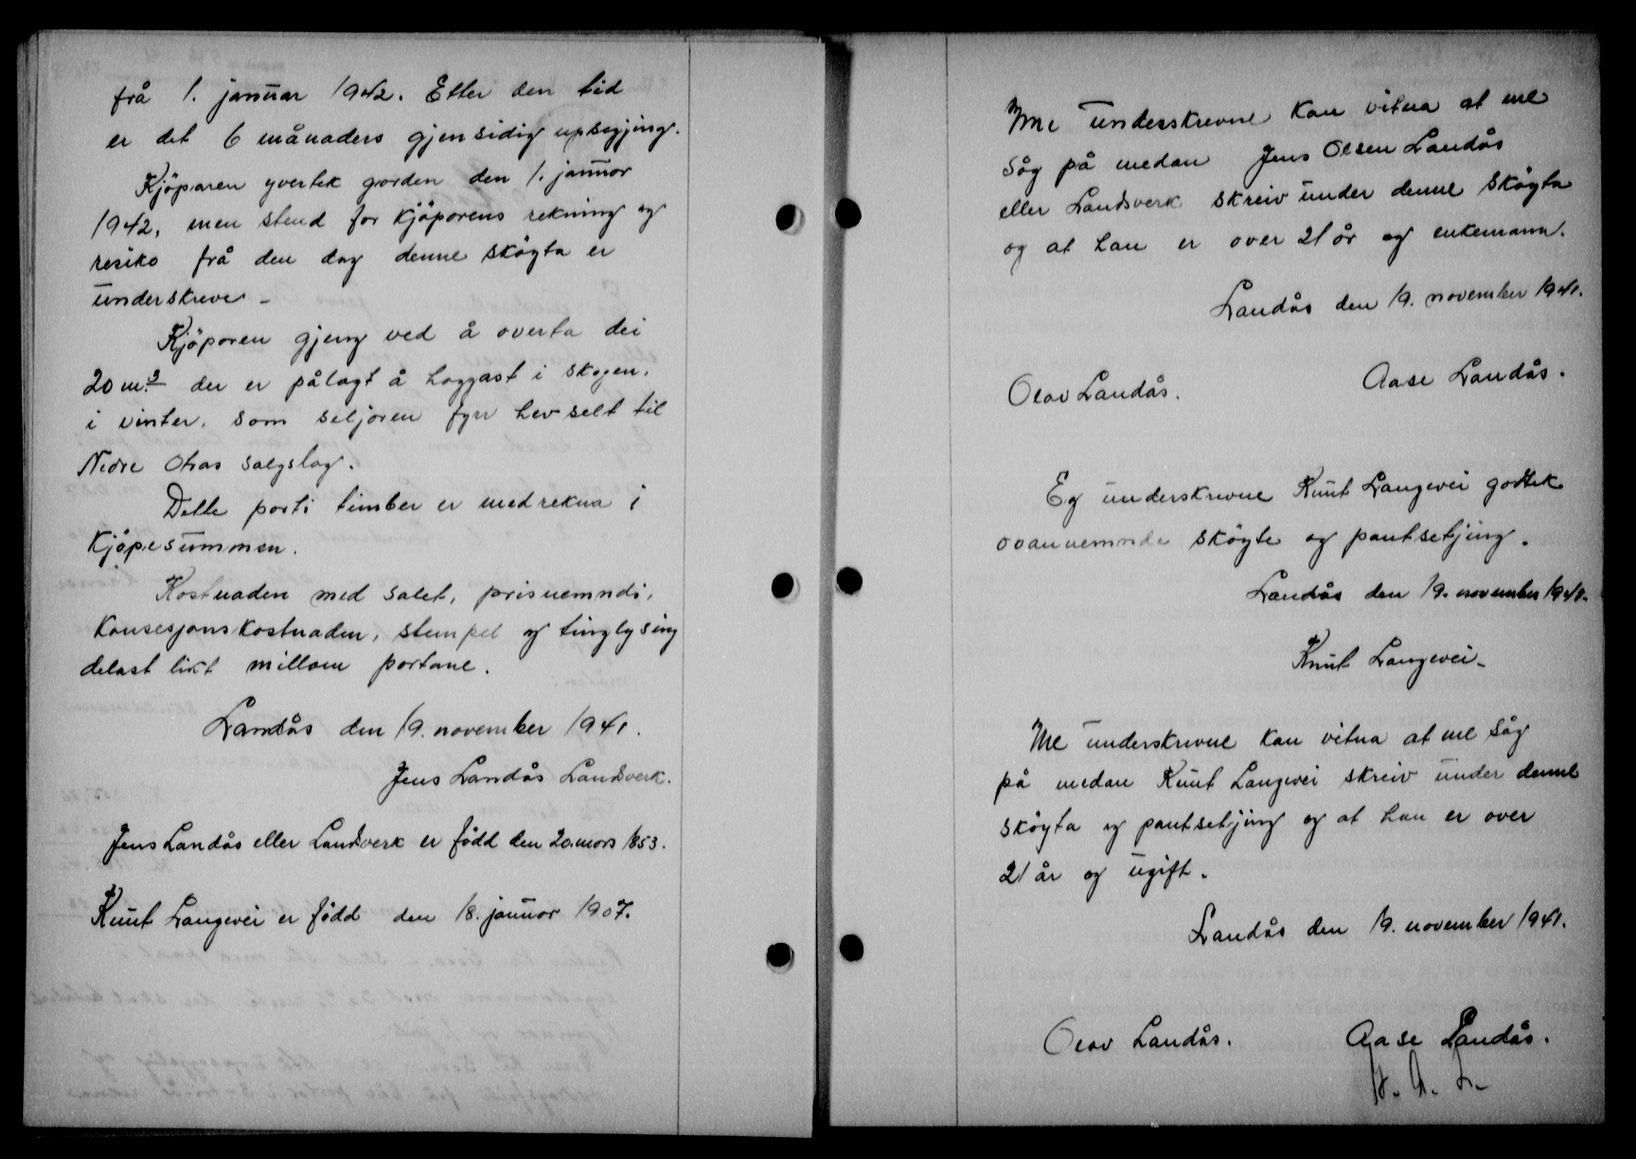 frå 1. januar 1942. Etter den tid
er det 6 månaders gjensidig uppsegjing.
Kjöparen yvertek garden den 1. januar
1942, men stend for kjöparens rekning og
resiko frå den dag denne sköyta er
underskreve -
Kjöparen gjeng ved å overta dei
20 m³ der er pålagt å hoggast i skogen.
i vinter. som seljaren fyrr hev selt til
Nedre Otras salgslag.
Dette parti timber er medrekna i
kjöpesummen.
Kostnaden med salet, prisnemndi,
konsesjonskostnaden, stempel og tinglysing
delast likt millom partane.
Landås den 19. november 1941.
Jens Landås Landsverk.
Jens Landås eller Landsverk er född den 20. mars 1853.
Knut Langevei er född den 18. januar 1907.
Me underskrevne kan vitna at me
såg på medan Jens Olsen Landås
eller Landsverk skreiv under denne sköyta
og at han er over 21 år og enkemann.
Landås den 19. november 1941.
Olav Landås. Aase Landås.
Eg underskrevne Knut Langevei godtek
ovannemnde sköyte og pantsetjing.
Landås den 19. november 1941.
Knut Langevei -
Me underskrevne kan vitna at me såg
på medan Knut Langevei skreiv under denne
sköyta og pantsetjing og at han er over
21 år og ugift.
Landås den 19. november 1941.
Olav Landås. Aase Landås.